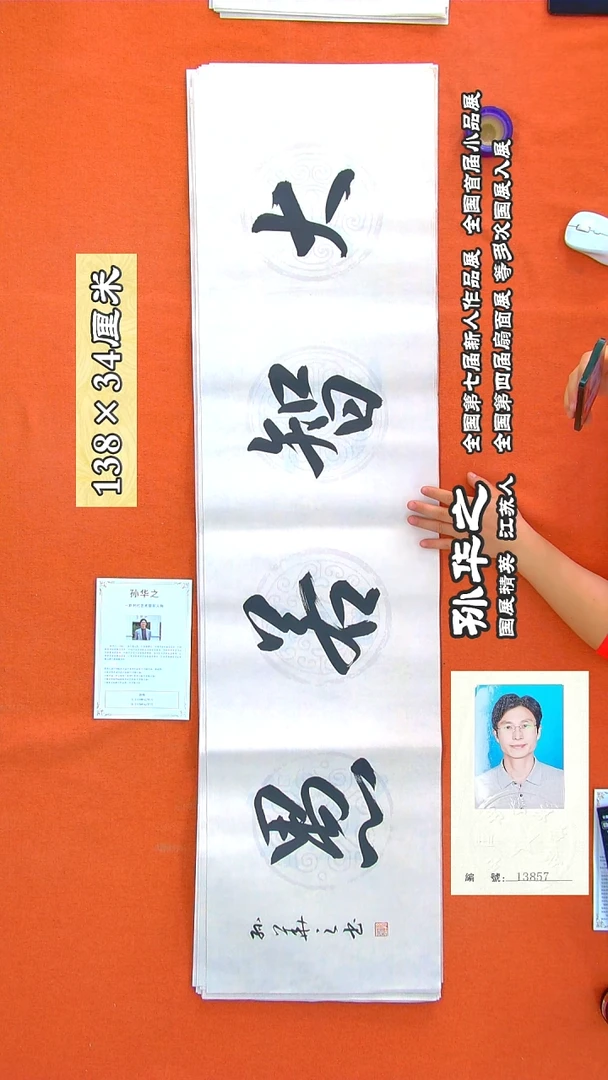 大智若愚
孙华之书
138×34厘米
孙华之
国展精英 江苏人
全国第七届新人作品展 全国首届小品展
全国第四届扇面展 等多次国展入展
孙华之
編 號: 13857